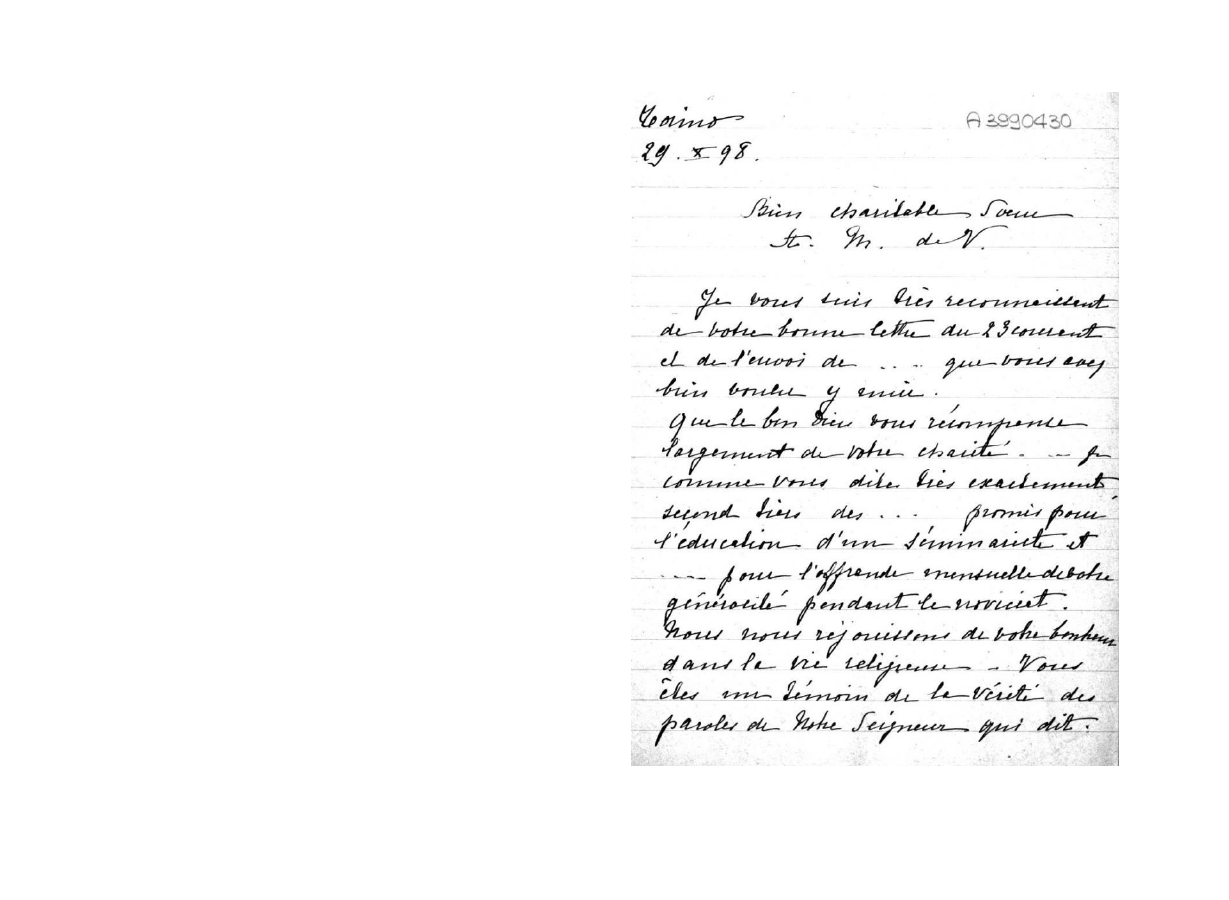 Torino
A 3990430
29. X 98.
Bien charitable Soeur
St. M. de V.
Je vous suis très reconnaissant
de votre bonne lettre du 23 courant
et de l'envoi de ... que vous avez
bien voulu y unir.
Que le bon Dieu vous récompense
largement de votre charité. ...
comme vous dites très exactement
second tiers des ... promis pour
l'éducation d'un séminariste et
.... pour l'offrande mensuelle de votre
générosité pendant le noviciat.
Nous nous réjouissons de votre bonheur
dans la vie religieuse - Vous
êtes un témoin de la vérité des
paroles de Notre Seigneur qui dit: